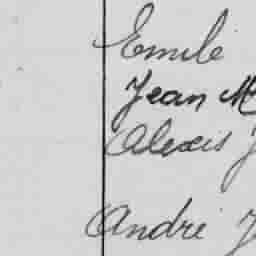 Emile
Jean M
Alexis J
André J